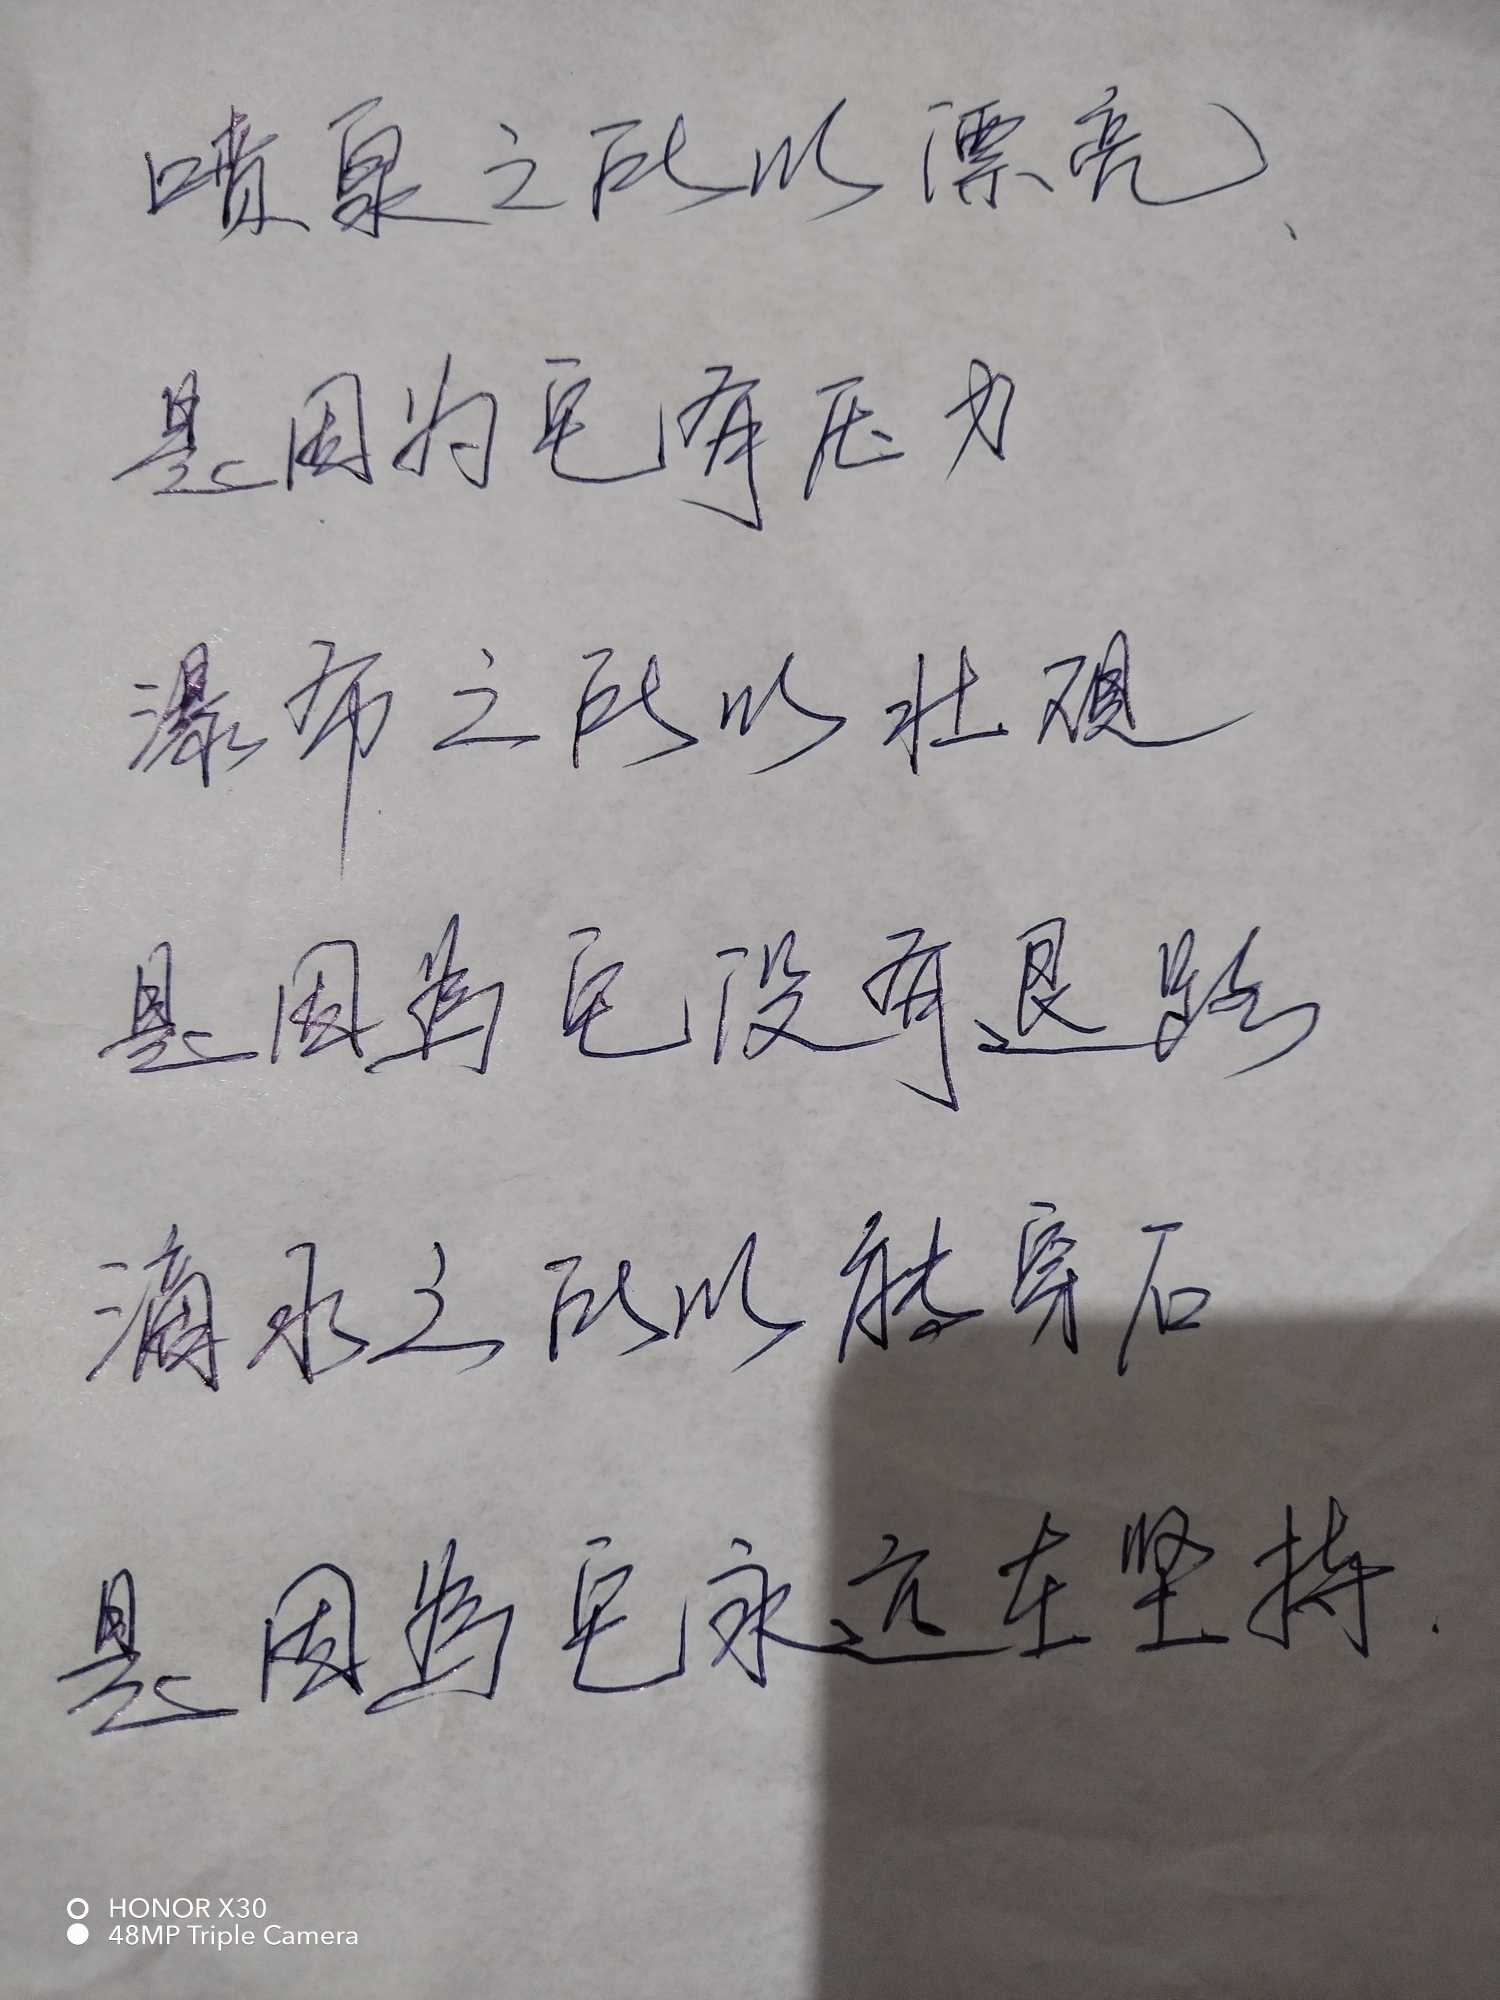 喷泉之所以漂亮、
是因为它有压力
瀑布之所以壮观
是因为它没有退路
滴水之所以能穿石
是因为它永远在坚持.
HONOR X30
48MP Triple Camera